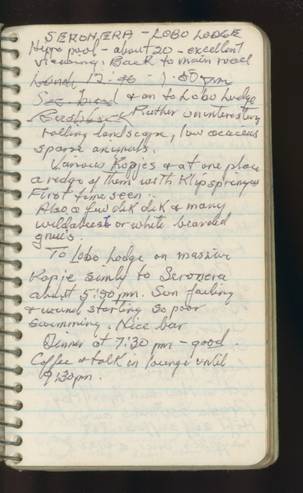 SERONERA - LOBO LODGE
Hippo pool - about 20 - excellent
viewing. Back to main road
Lunch 12:40 - 1:00pm
& on to Lobo Lodge
Rather uninteresting
rolling landscape, low acacias
sparse animals.
Various Kopjes & at one place
a ridge of them with Klipspringers
First time seen.
Also a few dik dik & many
wildebeest or white bearded
gnus.
To Lobo Lodge on massive
Kopje similar to Seronera
about 5:30 pm. Sun fading
& wind starting so poor
swimming. Nice bar
Dinner at 7:30 pm - good.
Coffee & talk in lounge until
9:30pm.